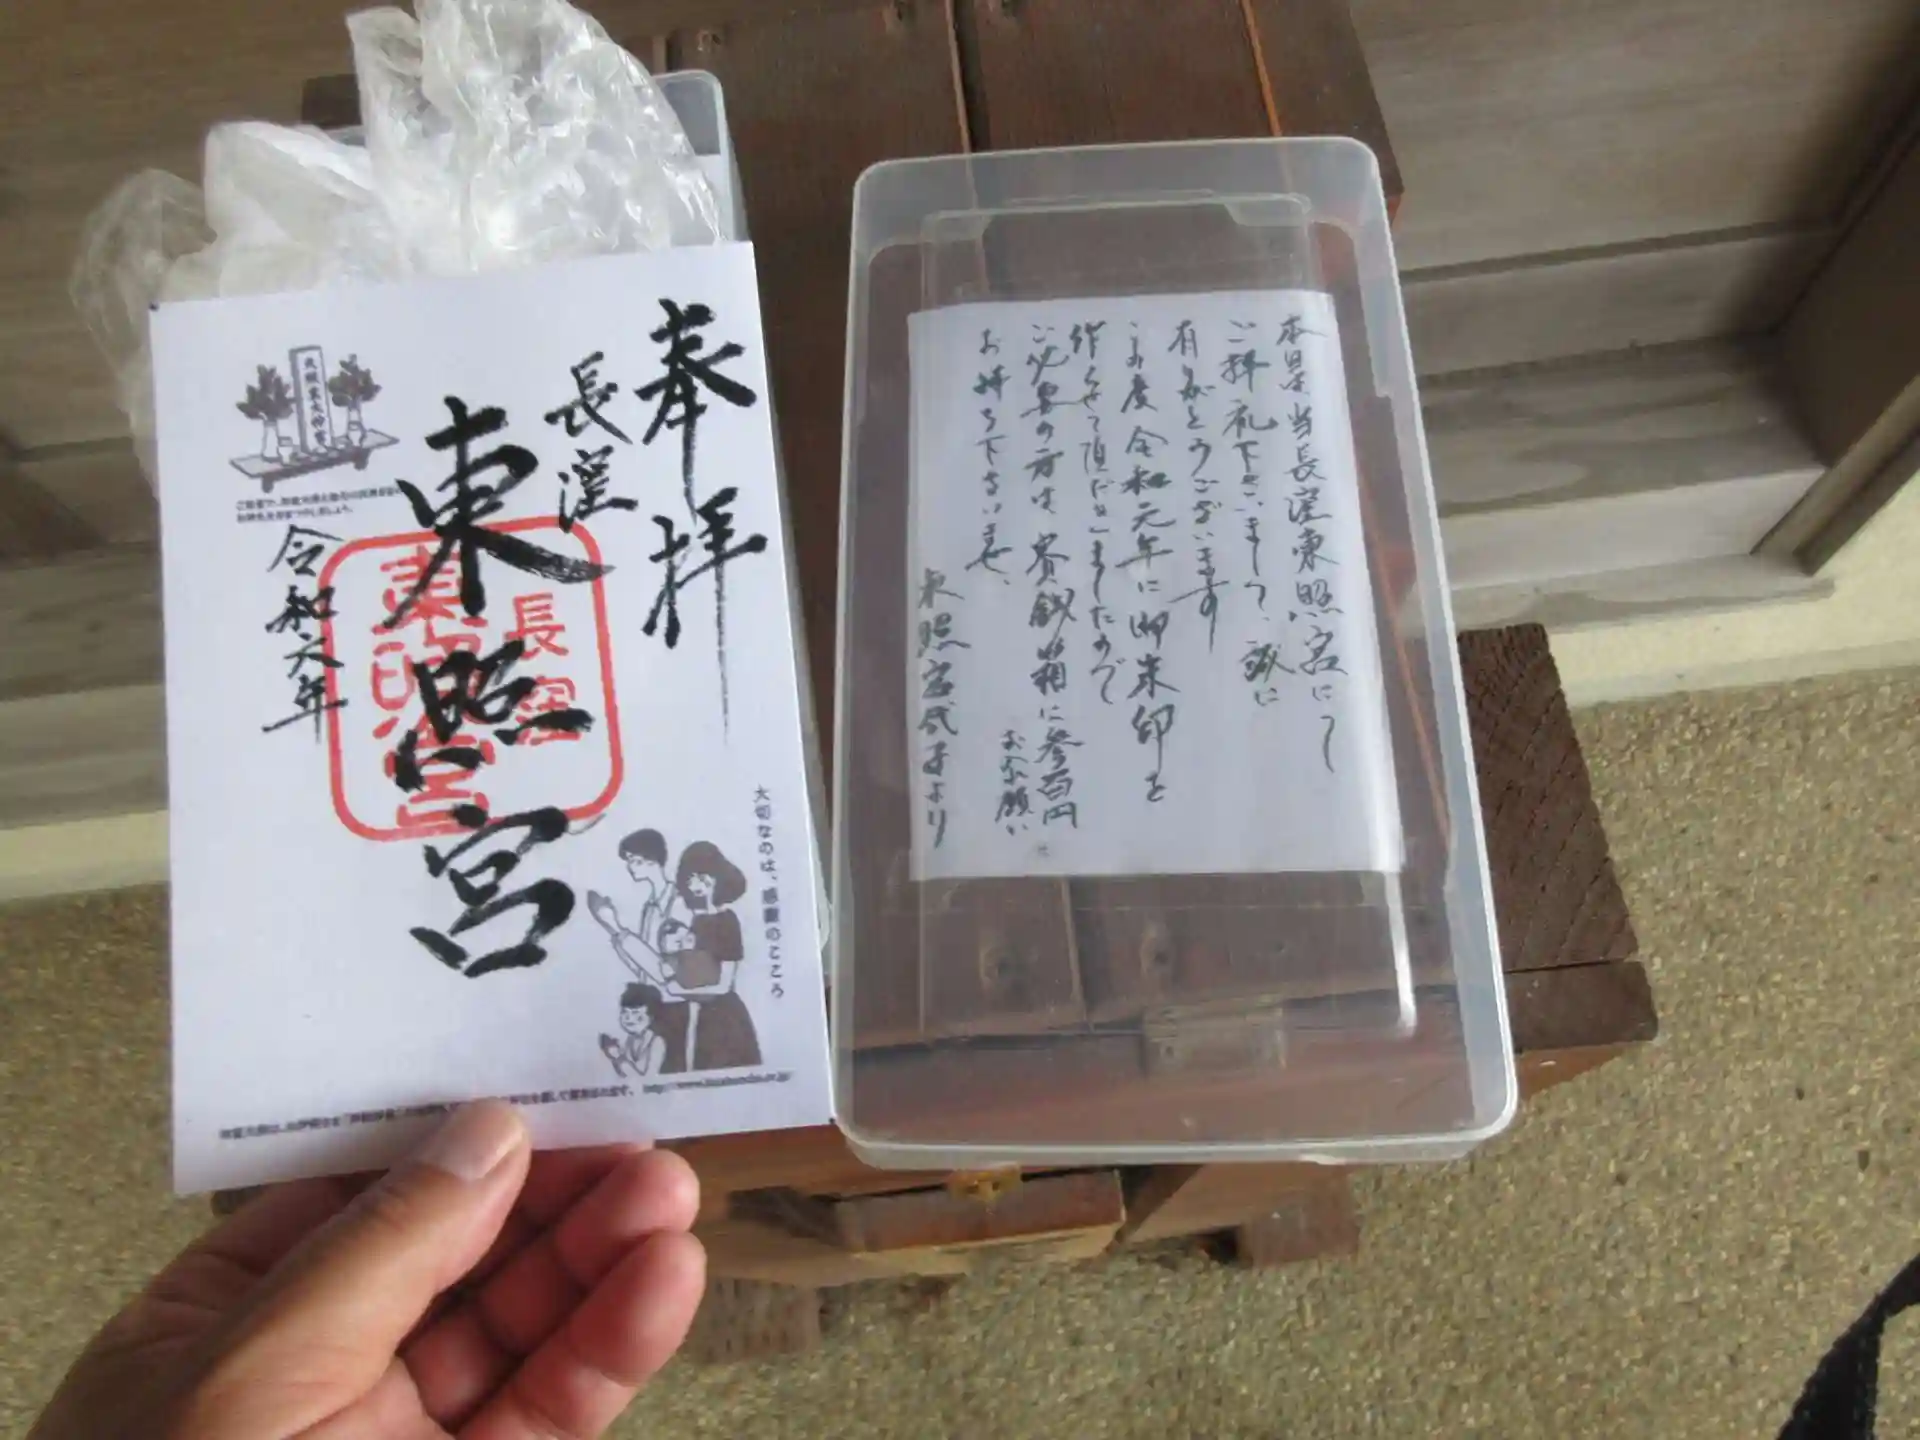 奉拝
長窪
東照宮
長窪
東照宮
令和六年
天照皇大神宮
大切なのは、感謝のこころ
本日は当長窪東照宮にて
ご拝礼下さいまして、誠に
有りがとうございます
この度令和元年に御朱印を
作らせて頂だきましたので
ご必要の方は、賽銭箱に参百円
お入れ願い
お持ち下さいませ、
東照宮氏子より